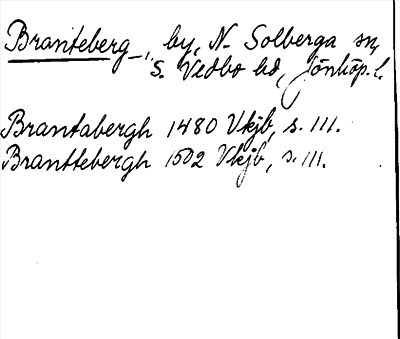 Branteberg, by, N. Solberga sn,
S. Vedbo hd, Jönköp. l.
Brantabergh 1480 Vkjb, s. 111.
Branttebergh 1502 Vkjb, s. 111.